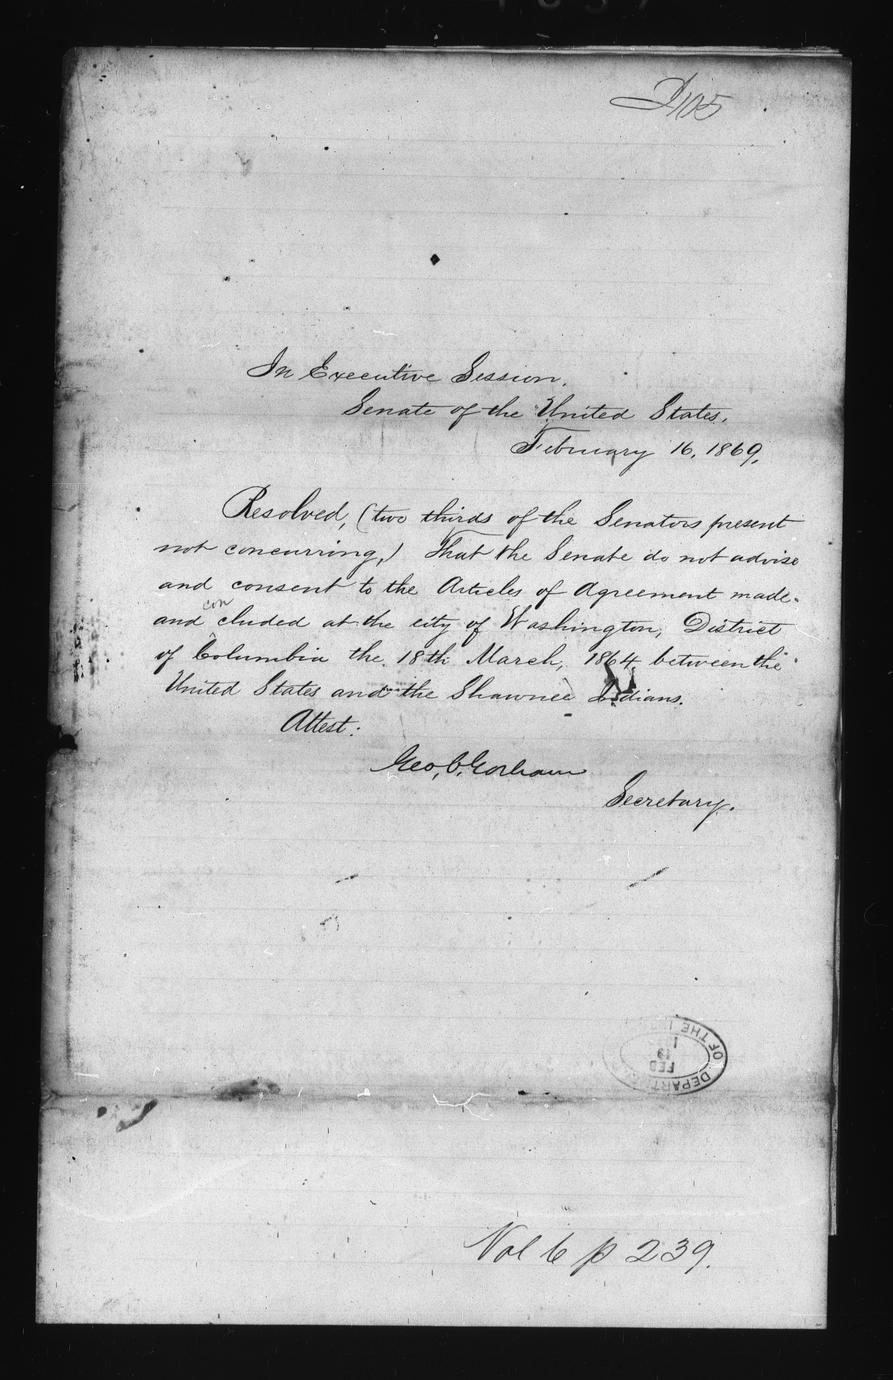 In Executive Session.
Senate of the United States,
February 16, 1869.
Resolved, (two thirds of the Senators present
not concurring,) That the Senate do not advise
and consent to the Articles of Agreement made
and concluded at the city of Washington, District
of Columbia the 18th March, 1864, between the
United States and the Shawnee Indians.
Attest:
Geo. C. Gorham
Secretary.
DEPART OF THE
FEB
19
Vol 6 p 239.